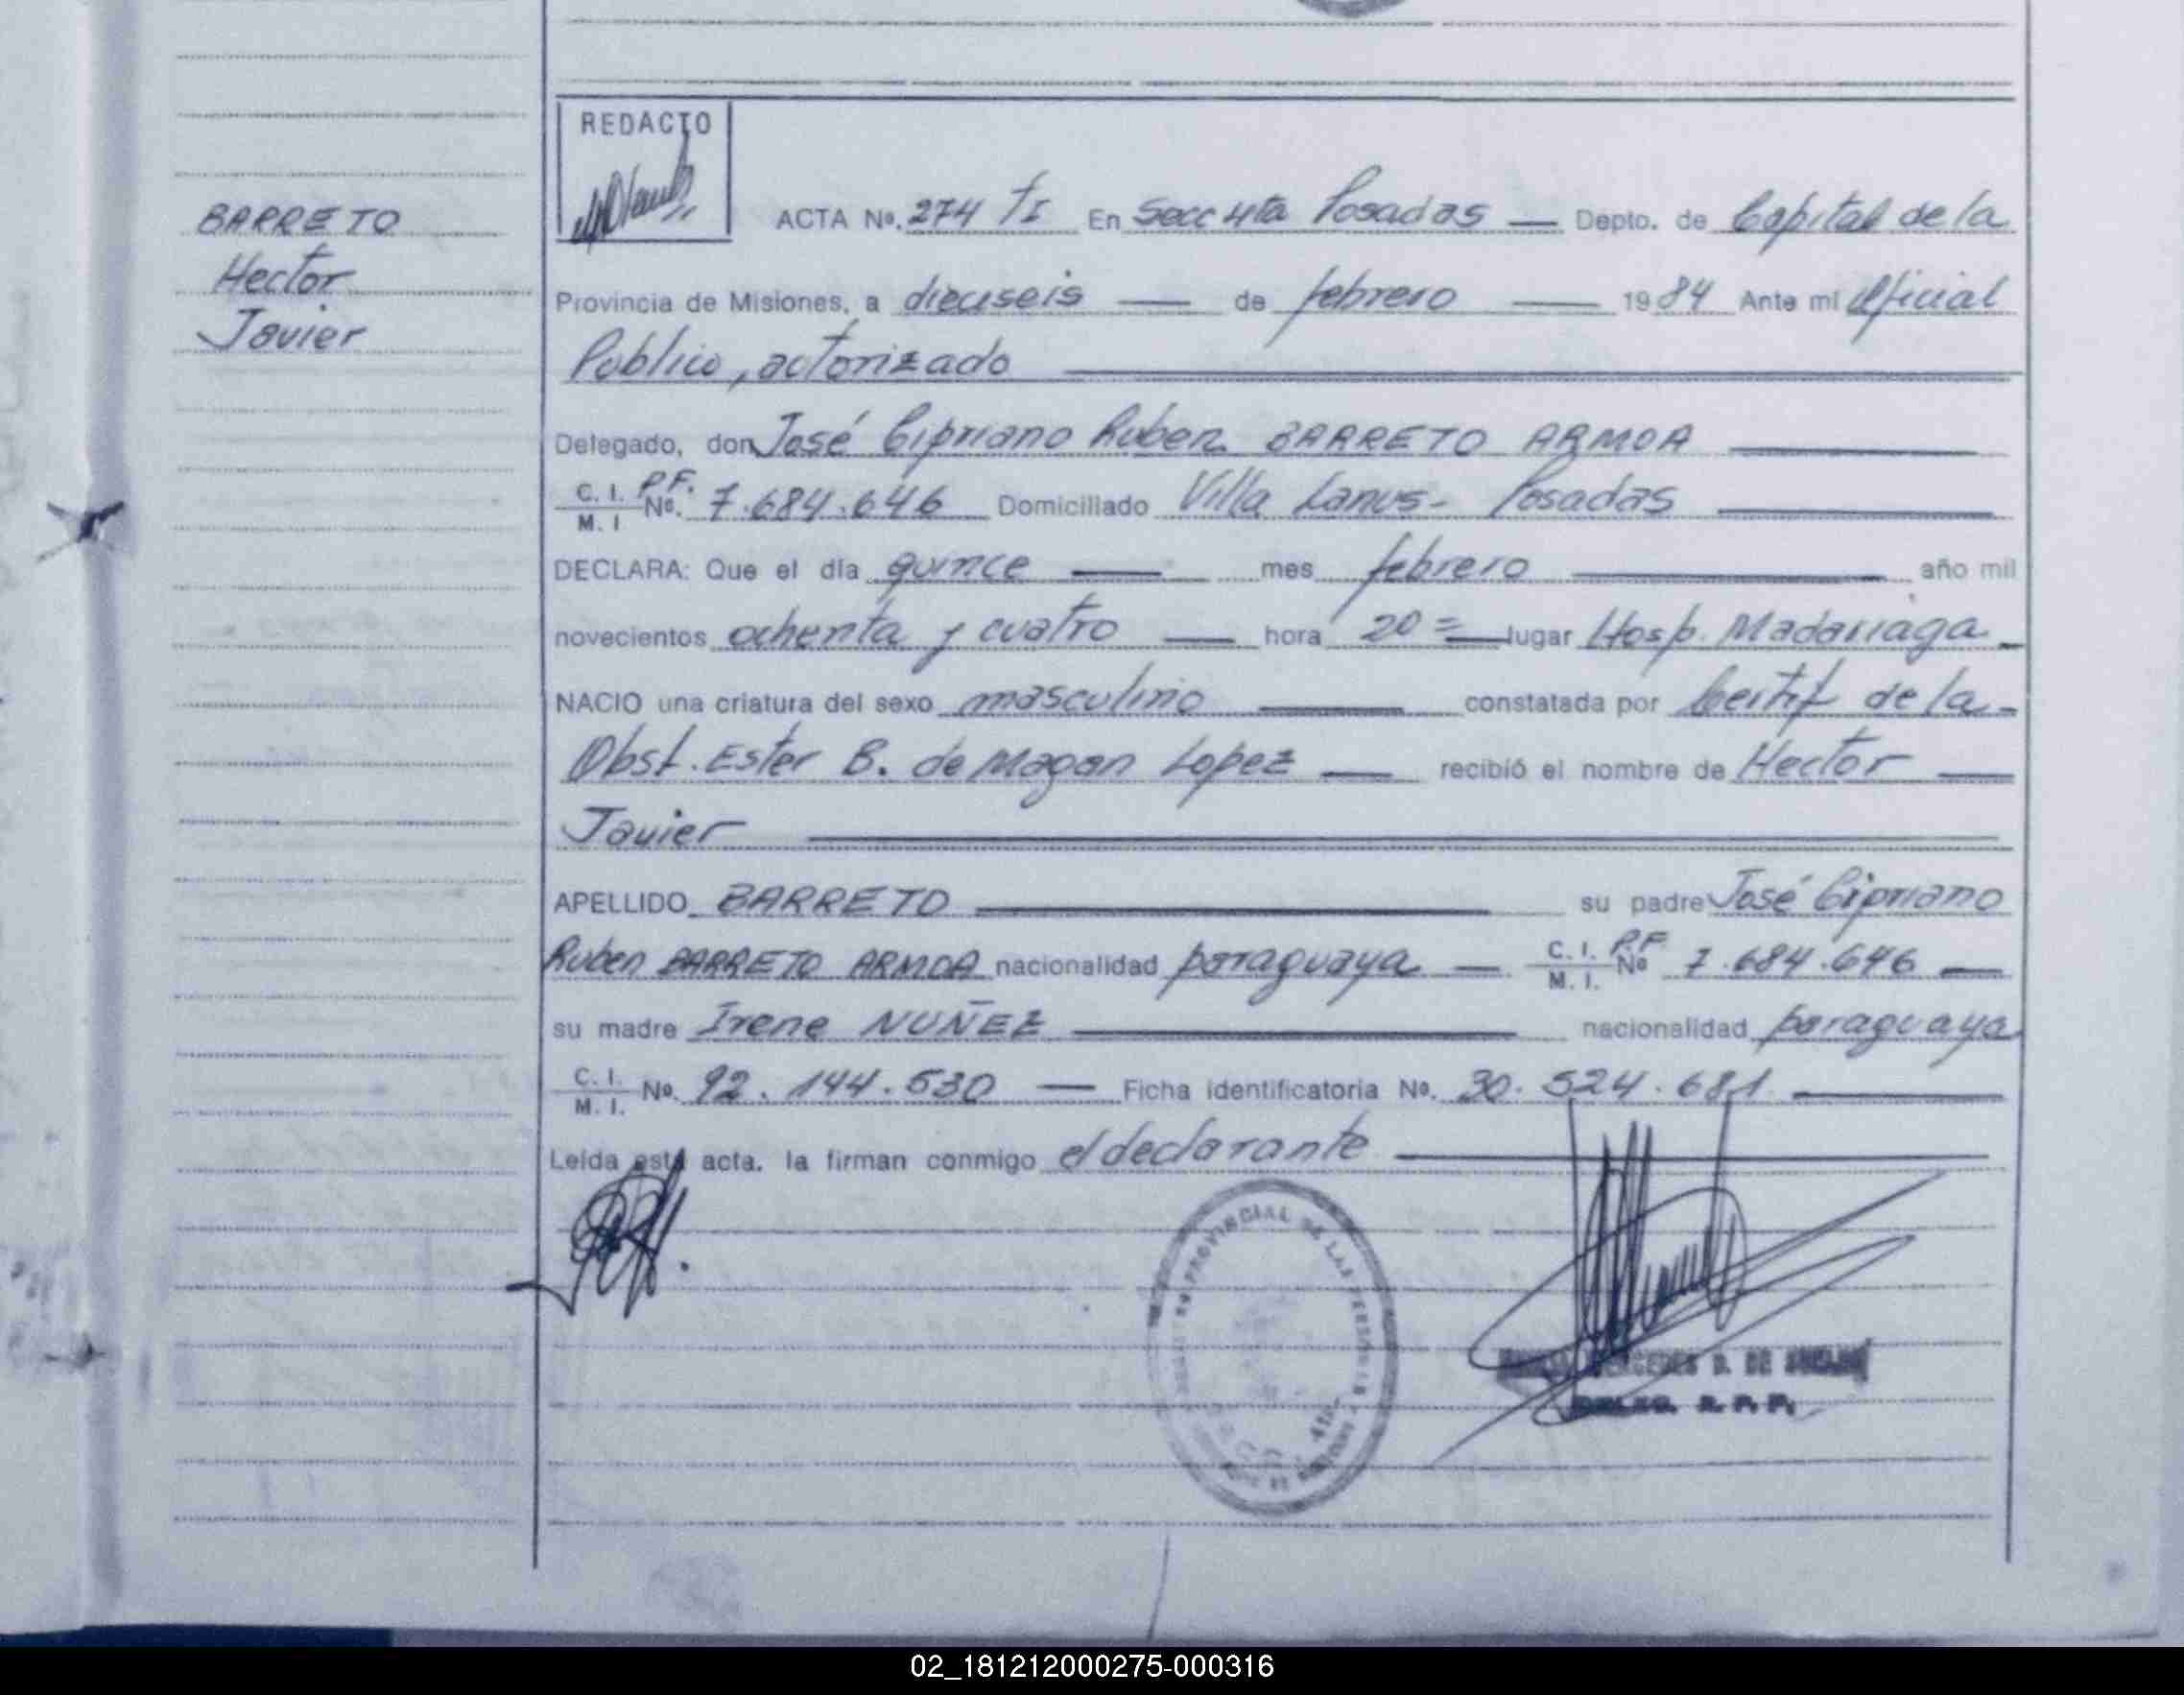 REDACTO
BARRETO
Hector
Javier
ACTA Nº. 274 TI En Secc 4ta Posadas — Depto. de Capital de la
Provincia de Misiones, a dieciseis — de febrero — 1984 Ante mi Oficial
Público, autorizado
Delegado, don José Cipriano Ruben BARRETO ARMOA
C. I. P.F. M. I Nº. 7.684.646 Domiciliado Villa Lanus - Posadas
DECLARA: Que el día quince — mes febrero — año mil
novecientos ochenta y cuatro — hora 20 = lugar Hosp. Madariaga -
NACIO una criatura del sexo masculino — constatada por Certif de la -
Obst. Ester B. de Magan Lopez — recibió el nombre de Hector —
Javier
APELLIDO BARRETO — su padre José Cipriano
Ruben BARRETO ARMOA nacionalidad paraguaya — C. I. P.F. M. I. Nº 7.684.646 —
su madre Irene NUÑEZ — nacionalidad paraguaya
C. I. M. I. Nº. 92.144.530 — Ficha identificatoria Nº. 30.524.681 —
Leída está acta. la firman conmigo el declarante
PROVINCIAL DE LAS PERSONAS
4ta
D. DE
DELEG. R. P. P.
02_181212000275-000316